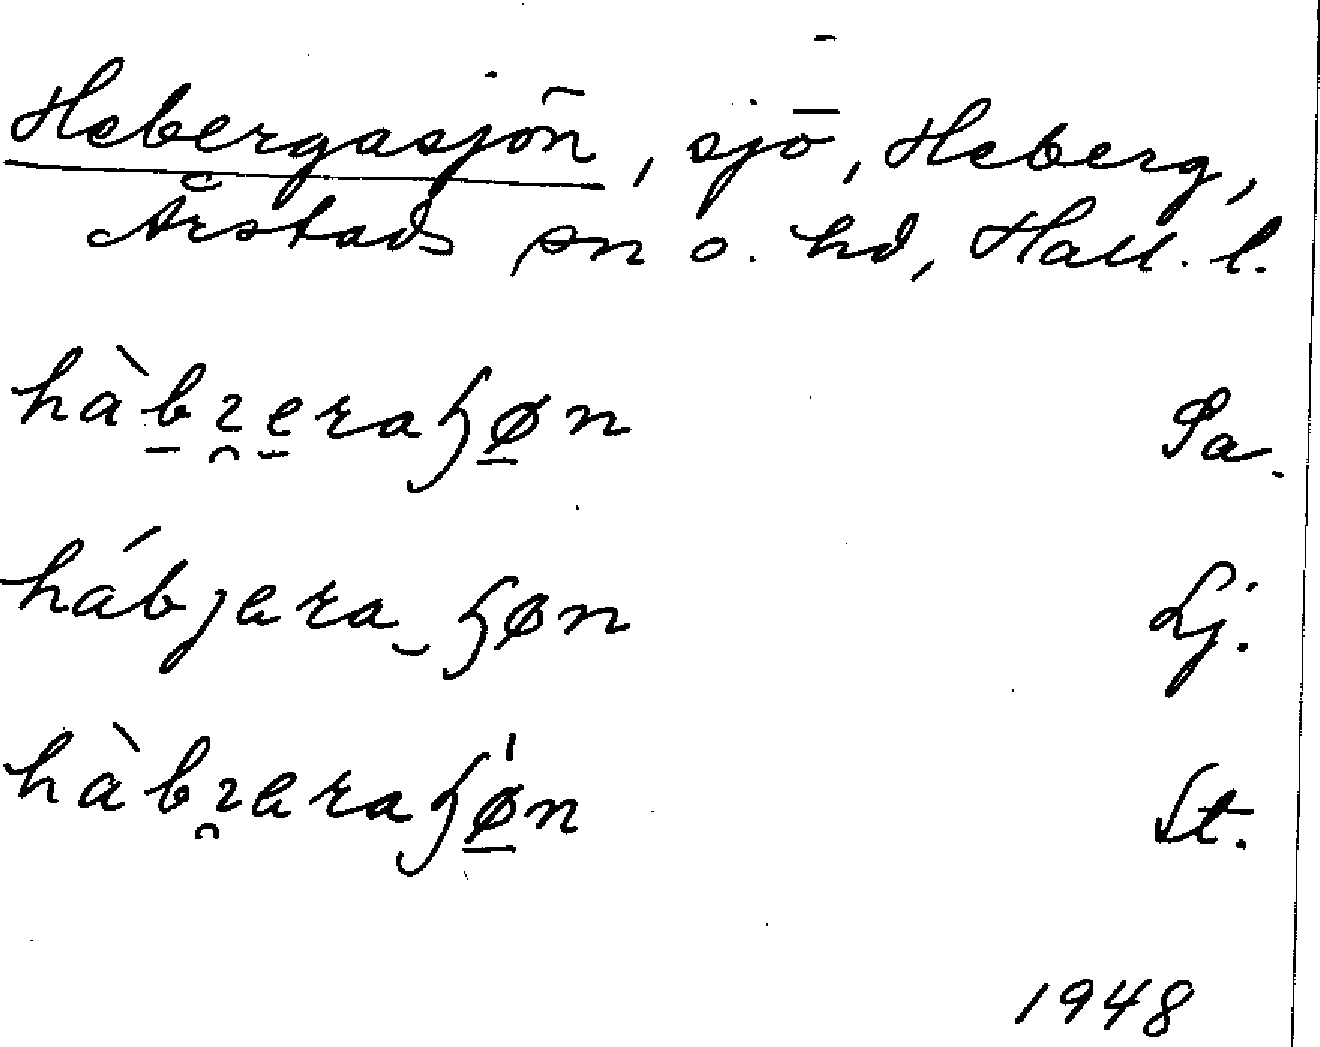 Hebergasjön, sjö, Heberg,
Årstads sn o. hd, Hall. l.
hàbɿeraɧøn Sa.
hábȷɐra ɧøn Lj.
hàbɿɐraɧøn St.
1948